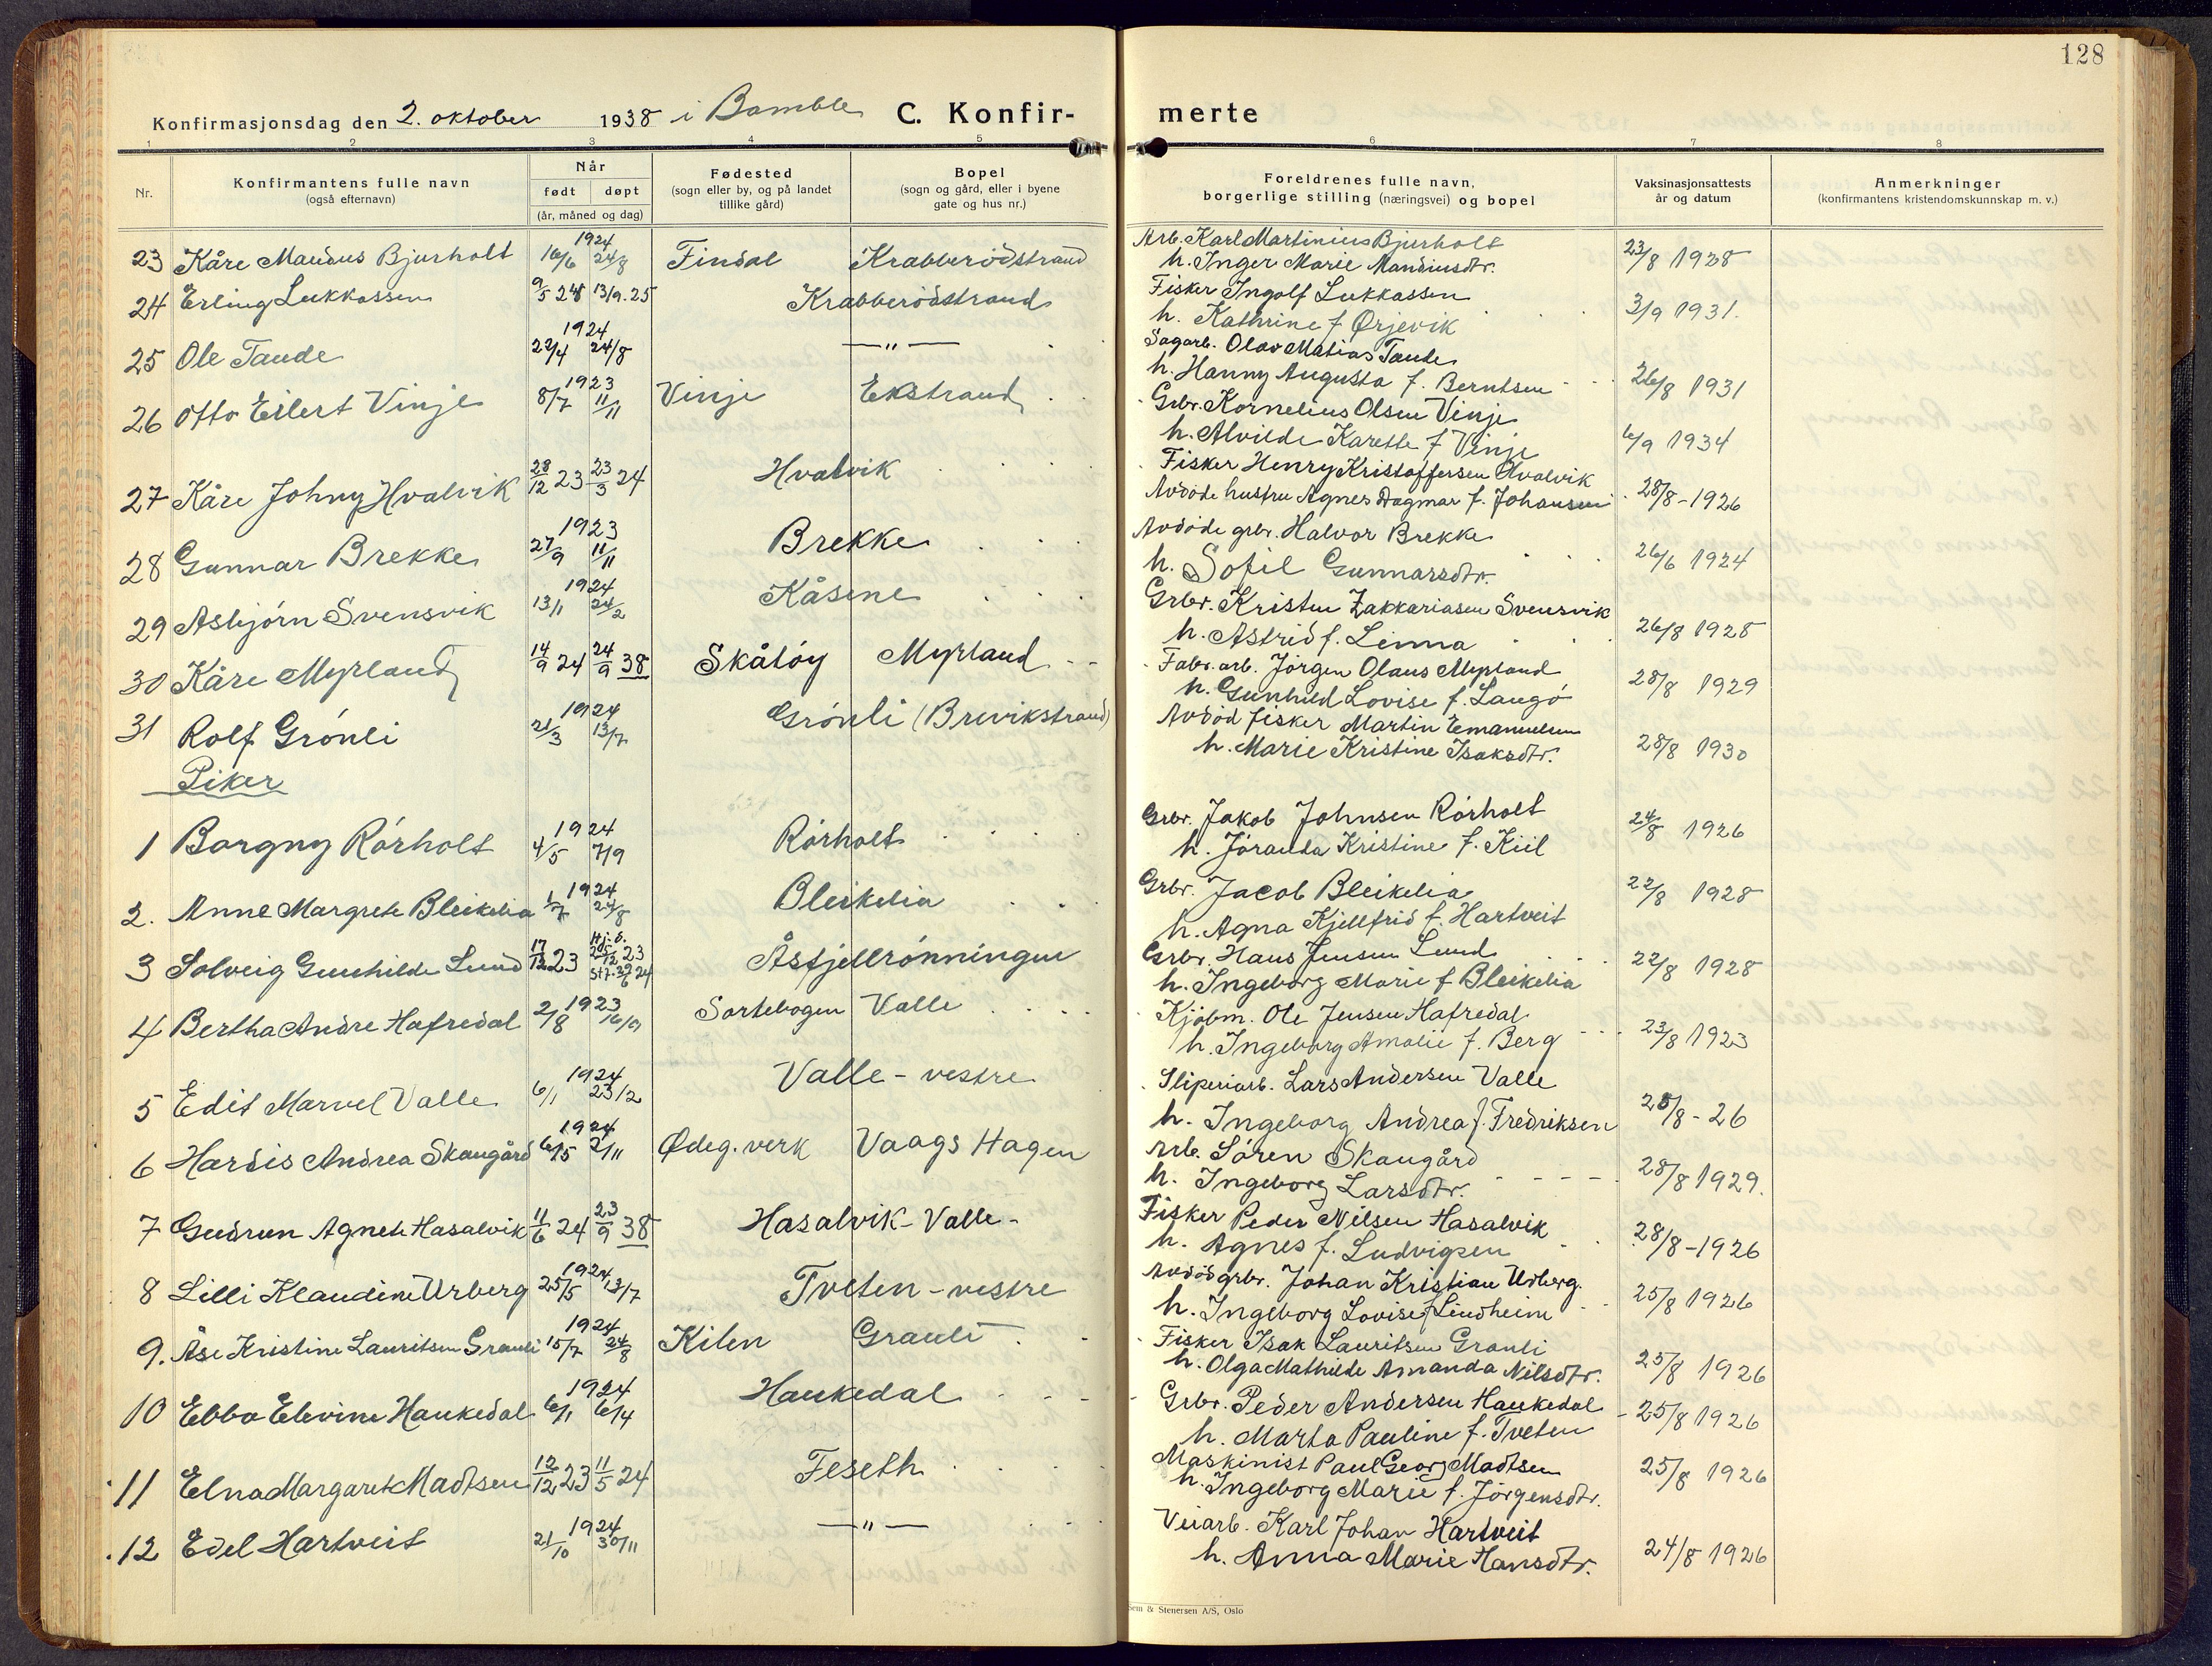 128
Konfirmasjonsdag den 2. oktober 1938 i Bamble C. Konfir-merte
1 2 3 4 5 6 7 8
Nr.
Konfirmantens fulle navn
(også efternavn)
Når
født døpt
(år, måned og dag)
Fødested
(sogn eller by, og på landet
tillike gård)
Bopel
(sogn og gård, eller i byene
gate og hus nr.)
Foreldrenes fulle navn,
borgerlige stilling (næringsvei) og bopel
Vaksinasjonsattests
år og datum
Anmerkninger
(konfirmantens kristendomskunnskap m. v.)
23 Kåre Mandius Bjurholt 1924 16/6 24/8 Findal Krabberødstrand Arb. Karl Martinius Bjurholt
h. Inger Marie Mandiusdtr. 23/8 1928
24 Erling Lukkassen 9/5 24 13/9.25 Krabberødstrand Fisker Ingolf Lukkassen
h. Kathrine f Ørjevik 3/9 1931.
25 Ole Tande 1924 22/4 24/8 —"— Sagarb. Olav Matias Tande
h. Hanny Augusta f. Berntsen 26/8 1931
26 Otto Eilert Vinje 1923 8/7 11/11 Vinje Ekstrand Grbr. Kornelius Olsen Vinje
h. Alvilde Karette f Vinje 6/9 1934
27 Kåre Johny Hvalvik 28/12 23 23/3 24 Hvalvik Fisker Henry Kristoffersen Hvalvik
Avdøde hustru Agnes Dagmar f. Johansen 28/8-1926
28 Gunnar Brekke 1923 27/9 11/11 Brekke Avdøde grbr. Halvor Brekke
h. Sofil Gunnarsdtr. 26/6 1924
29 Asbjørn Svensvik 1924 13/1 24/2 Kåsene Grbr. Kristen Zakkariasen Svensvik
h. Astrid f. Linna 26/8 1928
30 Kåre Myrland 14/9 24 24/9 38 Skåtøy Myrland Fabr. arb. Jørgen Olaus Myrland
h. Gunhild Lovise f. Langø 28/8 1929
31 Rolf Grønli 1924 21/3 13/7 Grønli (Brevikstrand) Avdød fisker Martin Emanuelsen
h. Marie Kristine Isaksdtr. 28/8 1930
Piker
1 Borgny Rørholt 1924 4/5 7/9 Rørholt Grbr. Jakob Johnsen Rørholt
h. Jøranda Kristine f. Kiil 24/8 1926
2. Anne Margrete Bleikelia 1924 1/7 24/8 Bleikelia Grbr. Jacob Bleikelia
h. Agna Kjellfrid f. Hartveit 22/8 1928
3 Solveig Gunhilde Lund 17/12 23 Hj.d. 25/12 23 Åsfjellrønningen Grbr. Hans Jensen Lund
h. Ingeborg Marie f Bleikelia 22/8 1928
4 Bertha Andre Hafredal 1923 2/8 16/9 Sortebogen Valle Kjøbm. Ole Jensen Hafredal
h. Ingeborg Amalie f. Berg 23/8 1923
5 Edit Marvel Valle 1924 6/1 23/2 Valle - vestre Sliperiarb. Lars Andersen Valle
h. Ingeborg Andrea f. Fredriksen 28/8-26
6 Hardis Andrea Skaugård 1924 6/5 2/11 Ødeg. verk Vaags Hagen Arb. Søren Skaugård
h. Ingeborg Larsdtr. 28/8 1929.
7 Gudrun Agnete Hasalvik 11/6 24 23/9 38 Hasalvik - Valle - Fisker Peder Nilsen Hasalvik
h. Agnes f. Ludvigsen 28/8-1926
8 Lilli Klaudine Urberg 1924 25/5 13/7 Tveten - vestre Avdød grbr. Johan Kristian Urberg.
h. Ingeborg Lovise f Lindheim 25/8 1926
9. Åse Kristine Lauritsen Granli 1924 15/7 24/8 Kilen Granli Fisker Isak Lauritsen Granli
h. Olga Mathilde Amanda Nilsdtr. 25/8 1926
10 Ebba Elevine Haukedal 1924 6/1 6/4 Haukedal Grbr. Peder Andersen Haukedal
h. Marta Pauline f. Tveten 25/8 1926
11 Elna Margaret Madtsen 12/12 23 11/5 24 Feseth Maskinist Paul Georg Madtsen
h. Ingeborg Marie f. Jørgensdtr. 25/8 1926
12 Edel Hartveit 1924 21/10 30/11 —"— Veiarb. Karl Johan Hartveit
h. Anna Marie Hansdtr. 24/8 1926
sem & Stenersen A/S, Oslo